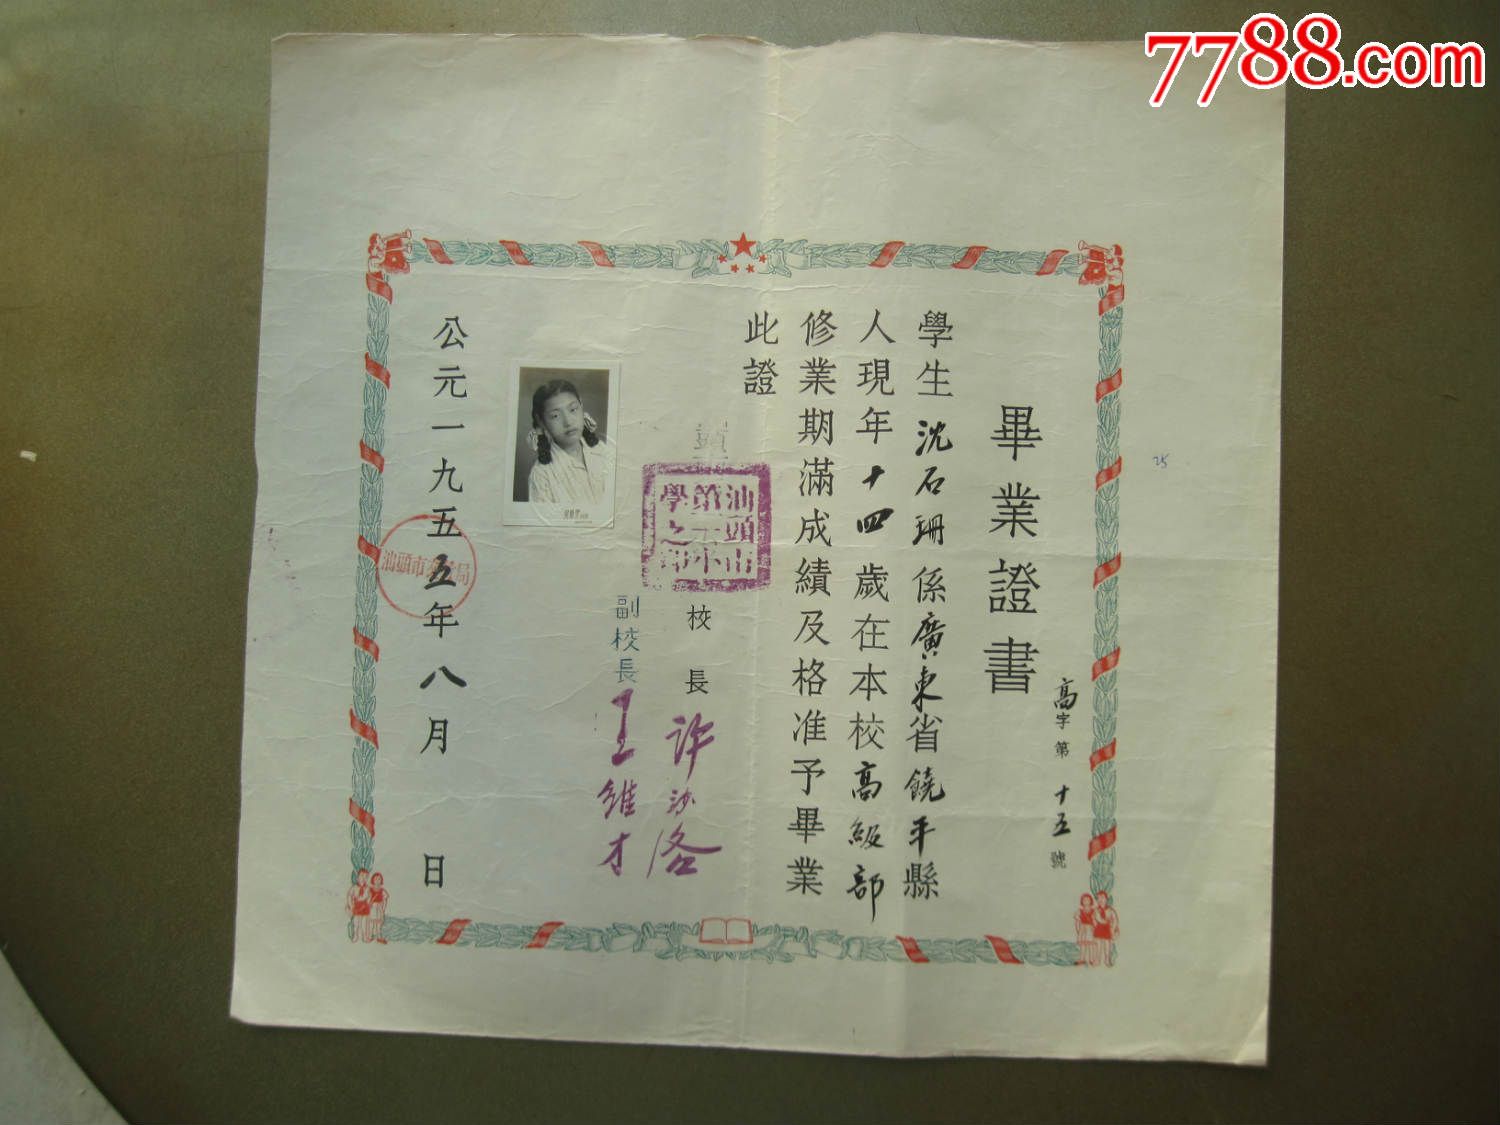 7788.com
畢業證書
高字第十五號
學生沈石珊係廣東省饒平縣
人現年十四歲在本校高級部
修業期滿成績及格准予畢業
此證
汕頭市
第小
學之印
校長許沙洛
副校長王維才
公元一九五五年八月 日
汕頭市局
25